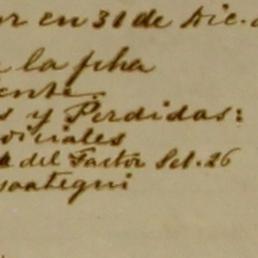 r en 31 de Dic.
la fha
ente.
s y Perdidas:
diciales
del Factor Set. 26
soategui